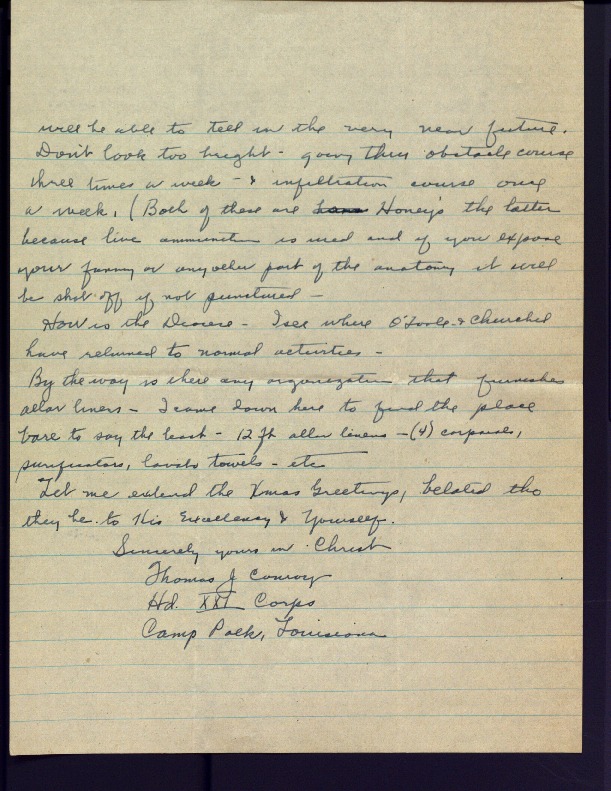 will be able to tell in the very near future.
Don't look too bright - going thru obstacle course
three times a week - & infiltration course once
a week. (Both of these are Honeys the latter
because live ammunition is used and if you expose
your fanny or any other part of the anatomy it will
be shot off if not punctured -
How is the Diocese - I see where O'Toole & Churchill
have returned to normal activities -
By the way is there any organization that furnishes
altar linens - I came down here to find the place
bare to say the least - 12 ft altar linens - (4) corporals,
purificators, lavabo towels - etc
Let me extend the Xmas Greetings, belated tho
they be to His Excellency & Yourself.
Sincerely yours in Christ
Thomas J Conroy
Hd. XXI Corps
Camp Polk, Louisiana